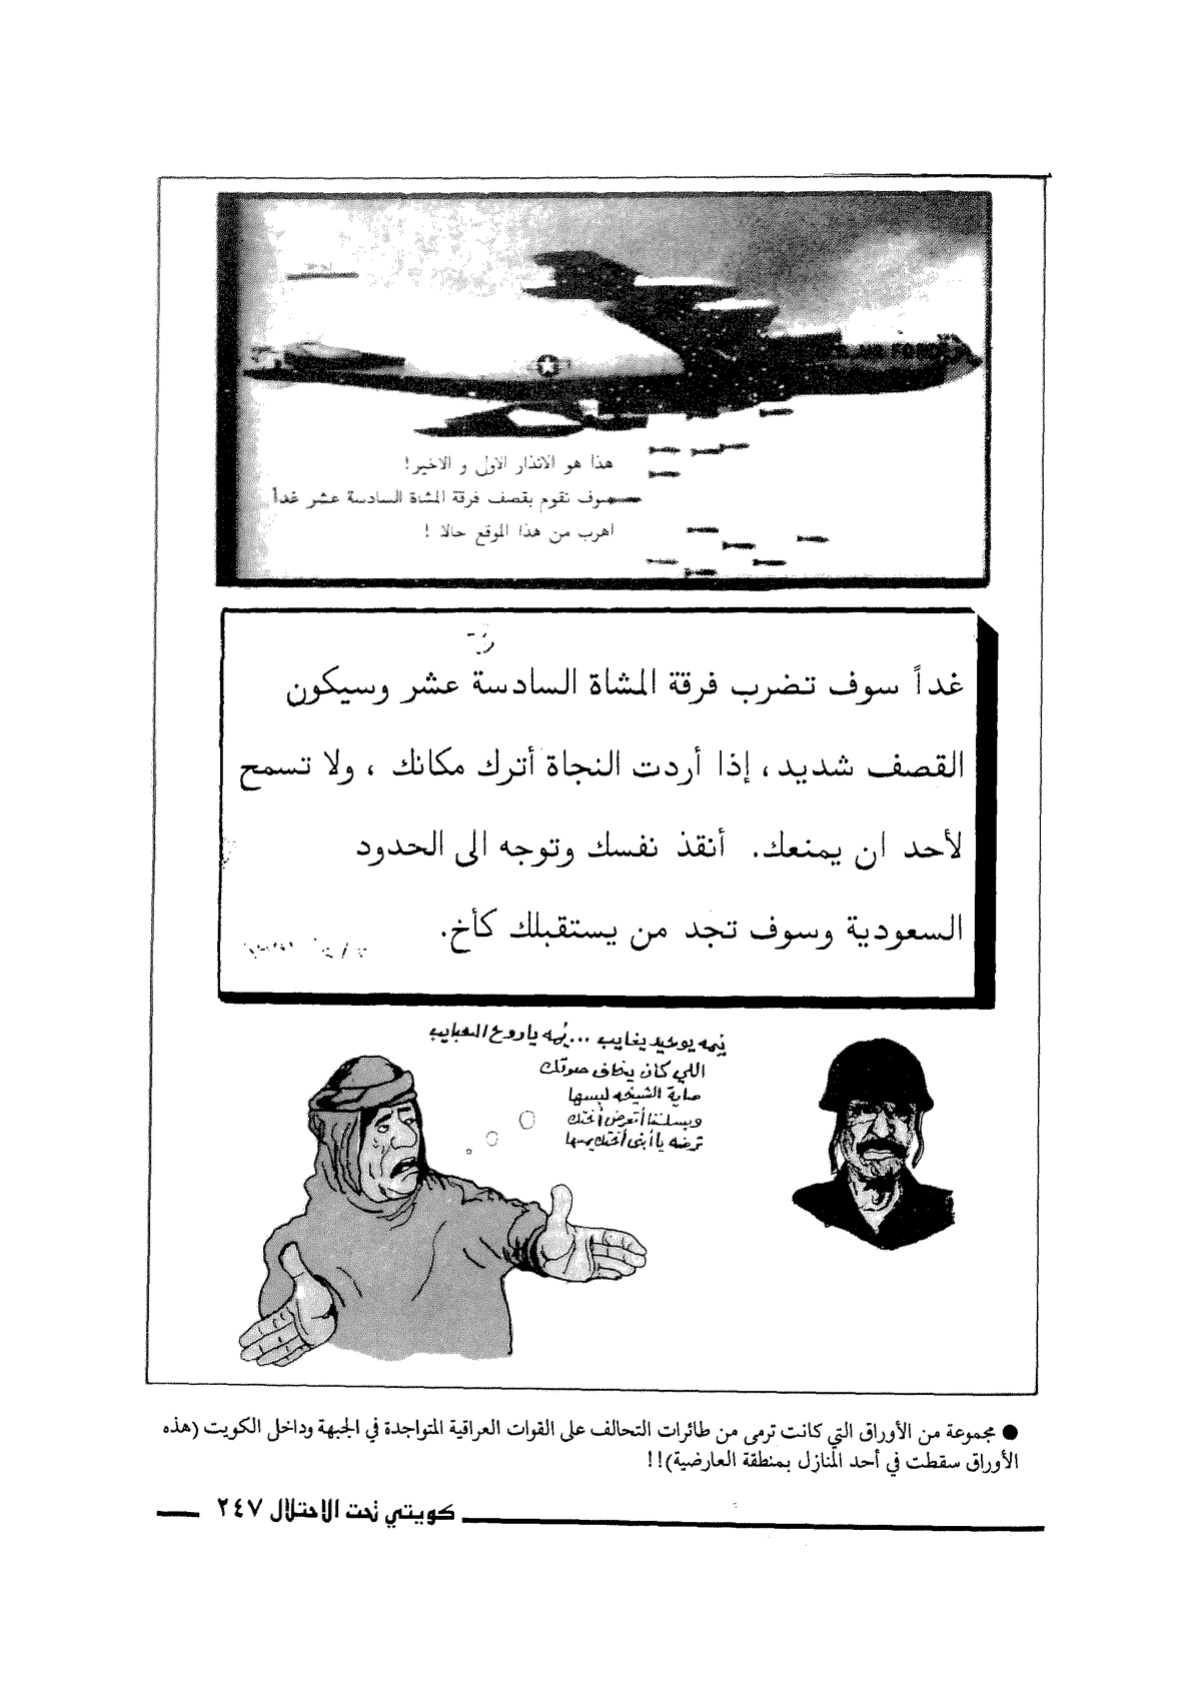 U.S. AIR FORCE
هذا هو الانذار الاول و الاخير!
سوف نقوم بقصف فرقة المشاة السادسة عشر غداً
اهرب من هذا الموقع حالا !
غداً سوف تضرب فرقة المشاة السادسة عشر وسيكون
القصف شديد، إذا أردت النجاة أترك مكانك ، ولا تسمح
لأحد ان يمنعك. أنقذ نفسك وتوجه الى الحدود
السعودية وسوف تجد من يستقبلك كأخ.
يُمه يوعيد يغايب ... يُمه ياروح الحبايب
اللي كان يخاف صوتك
صاية الشيخه لبسها
وبسلتنا أتعرض أختك
ترضه يا أبني أختك يمسها
● مجموعة من الأوراق التي كانت ترمى من طائرات التحالف على القوات العراقية المتواجدة في الجبهة وداخل الكويت (هذه
الأوراق سقطت في أحد المنازل بمنطقة العارضية)!!
كويتي تحت الاحتلال ٢٤٧